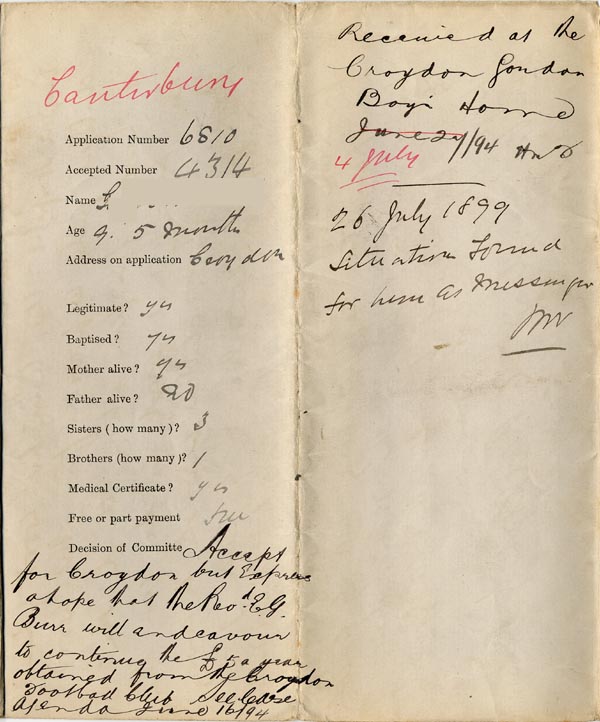 Canterbury
Application Number 6810
Accepted Number 4314
Name G
Age 9. 5 months
Address on application Croydon
Legitimate? yes
Baptised? yes
Mother alive? yes
Father alive? No
Sisters (how many)? 3
Brothers (how many)? 1
Medical Certificate? yes
Free or part payment Free
Decision of Committe Accept
for Croydon but Express
a hope that the Revd. E.G.
Burr will endeavour
to continue the £ a year
obtained from the Croydon
Football Club See Case
Agenda June 16/94
Received at the
Croydon Gordon
Boys Home
June 27/94
4 July
26 July 1899
Situation Found
for him as Messenger